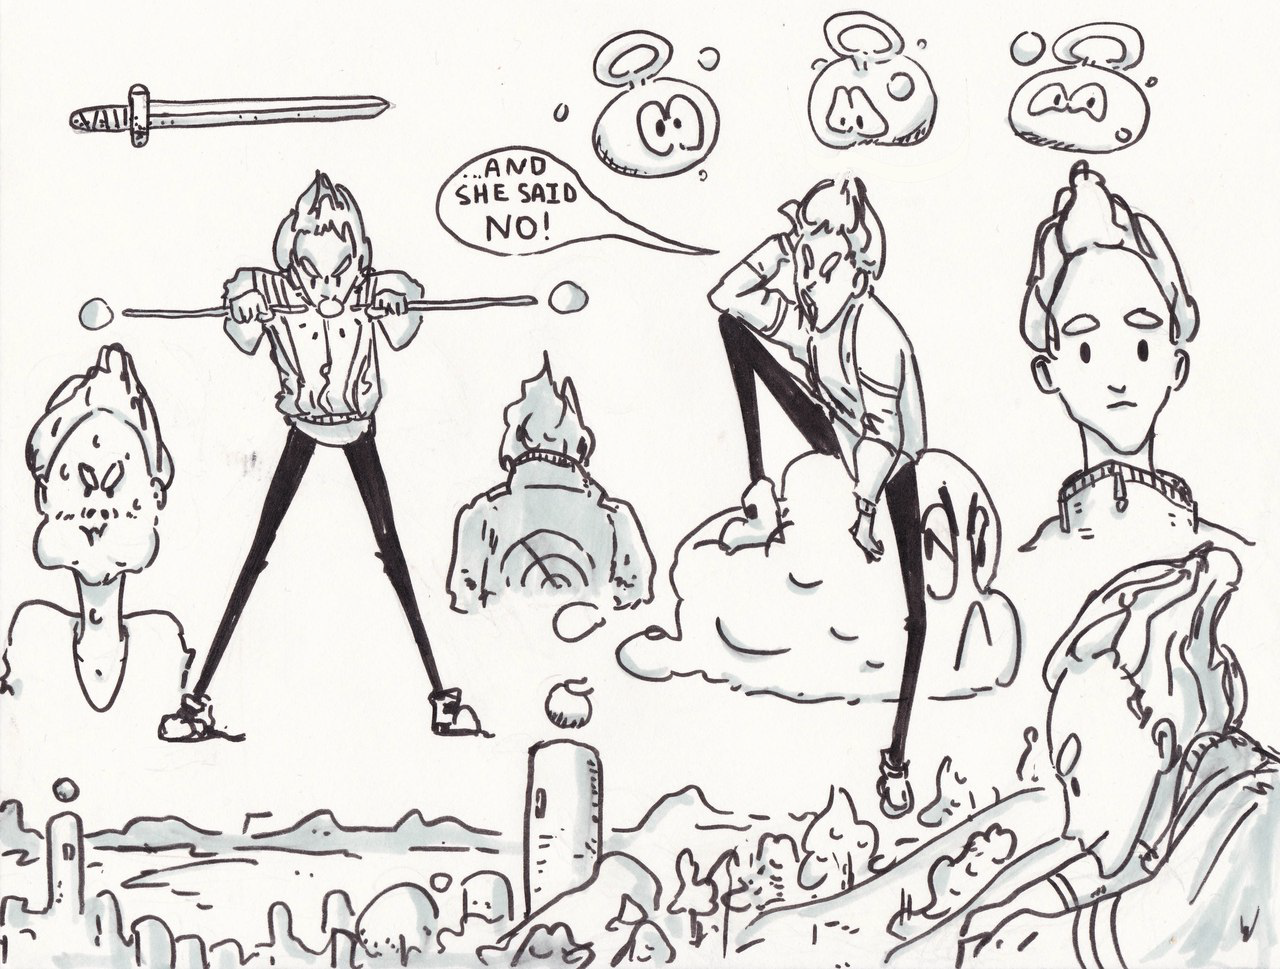 ...AND
SHE SAID
NO!